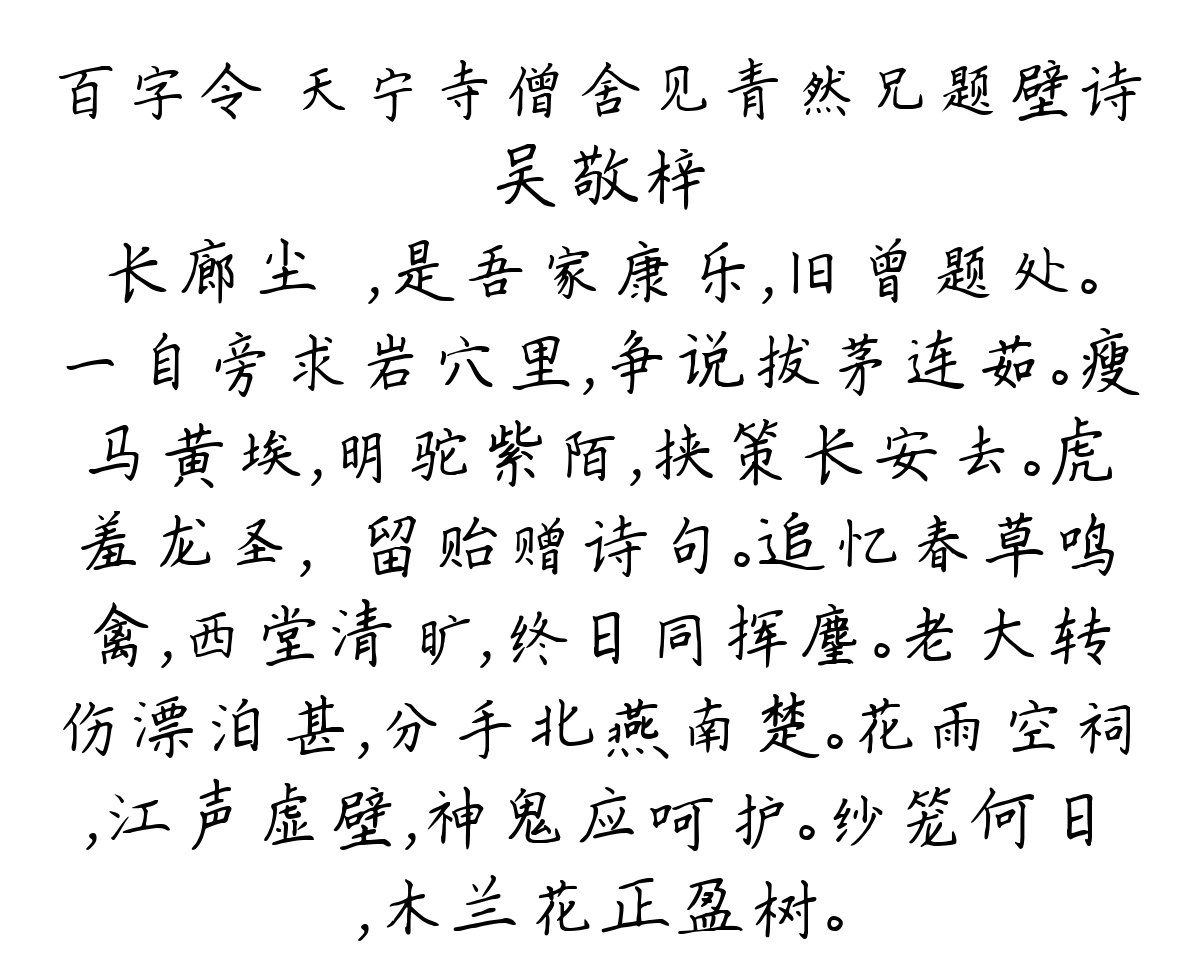 百字令 天宁寺僧舍见青然兄题壁诗
吴敬梓
长廊尘 ,是吾家康乐,旧曾题处。
一自旁求岩穴里,争说拔茅连茹。瘦
马黄埃,明驼紫陌,挟策长安去。虎
羞龙圣, 留贻赠诗句。追忆春草鸣
禽,西堂清旷,终日同挥麈。老大转
伤漂泊甚,分手北燕南楚。花雨空祠
,江声虚壁,神鬼应呵护。纱笼何日
,木兰花正盈树。